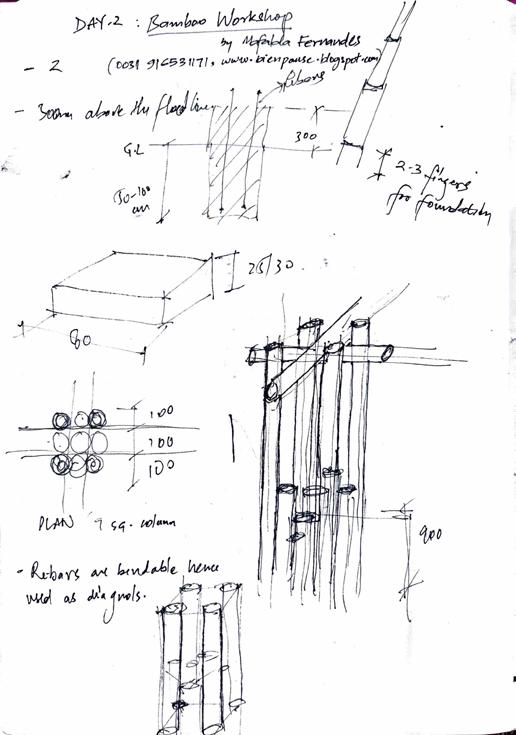 DAY-2 : Bamboo Workshop
by Mofabla Fernandes
- 2 (0031 916531171, www.bienpause.blogspot.com)
rebars
- 300mm above the flood line
300
G.L
50-100
cm
2-3 fingers
for foundation
25/30
80
100
100
100
PLAN 9 sq. column
900
- Rebars are bendable hence
used as diagnols.